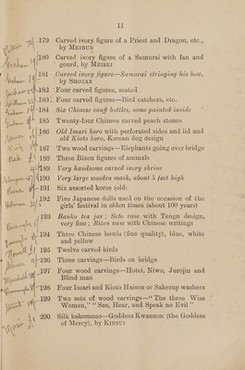 11
179 Carved ivory figure of a Priest and Dragon, etc.,
by MEIBUN
180 Carved ivory figure of a Samurai with fan and
gourd, by MEISEI
181 Carved ivory figure—Samurai stringing his bow,
by SHOZAN
182 Four carved figures, seated
183 Four carved figures—Bird catchers, etc.
184 Six Chinese snuff bottles, some painted inside
185 Twenty-four Chinese carved peach stones
186 Old Imari koro with perforated sides and lid and
old Kioto koro, Korean dog design
187 Two wood carvings—Elephants going over bridge
188 Three Bizen figures of animals
189 Very handsome carved ivory shrine
190 Very large wooden mask, about 5 feet high
191 Six assorted koros (old)
192 Five Japanese dolls used on the occasion of the
girls' festival in olden times (about 100 years)
193 Banko tea jar; Seto vase with Tengu design,
very fine; Bizen vase with Chinese writings
194 Three Chinese bowls (fine quality), blue, white
and yellow
195 Twelve carved birds
196 Three carvings—Birds on bridge
197 Four wood carvings—Hotei, Niwo, Jurojin and
Blind man
198 Four Imari and Kioto Haisen or Sakecup washers
199 Two sets of wood carvings—"The three Wise
Women," "See, Hear, and Speak no Evil"
200 Silk kakemono—Goddess Kwannon (the Goddess
of Mercy), by KINSUI